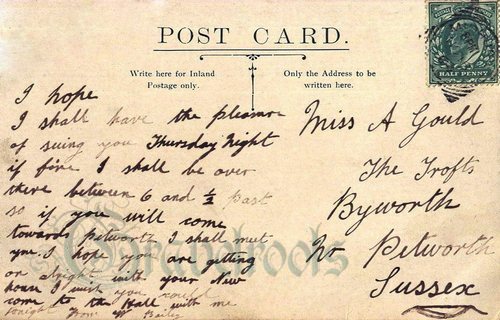 POST CARD.
Write here for Inland
Postage only.
Only the Address to be
written here.
HALF PENNY
I hope
I shall have the pleasure
of seing you Thursday Night
if fine I shall be over
there between 6 and ½ past
so if you will come
towards petworth I shall meet
you. I hope you are getting
on alright with your New
house I wish you could
come to the Hall with me
tonight from W Bailey
Miss A Gould
The Trofts
Byworth
Nr Petworth
Sussex